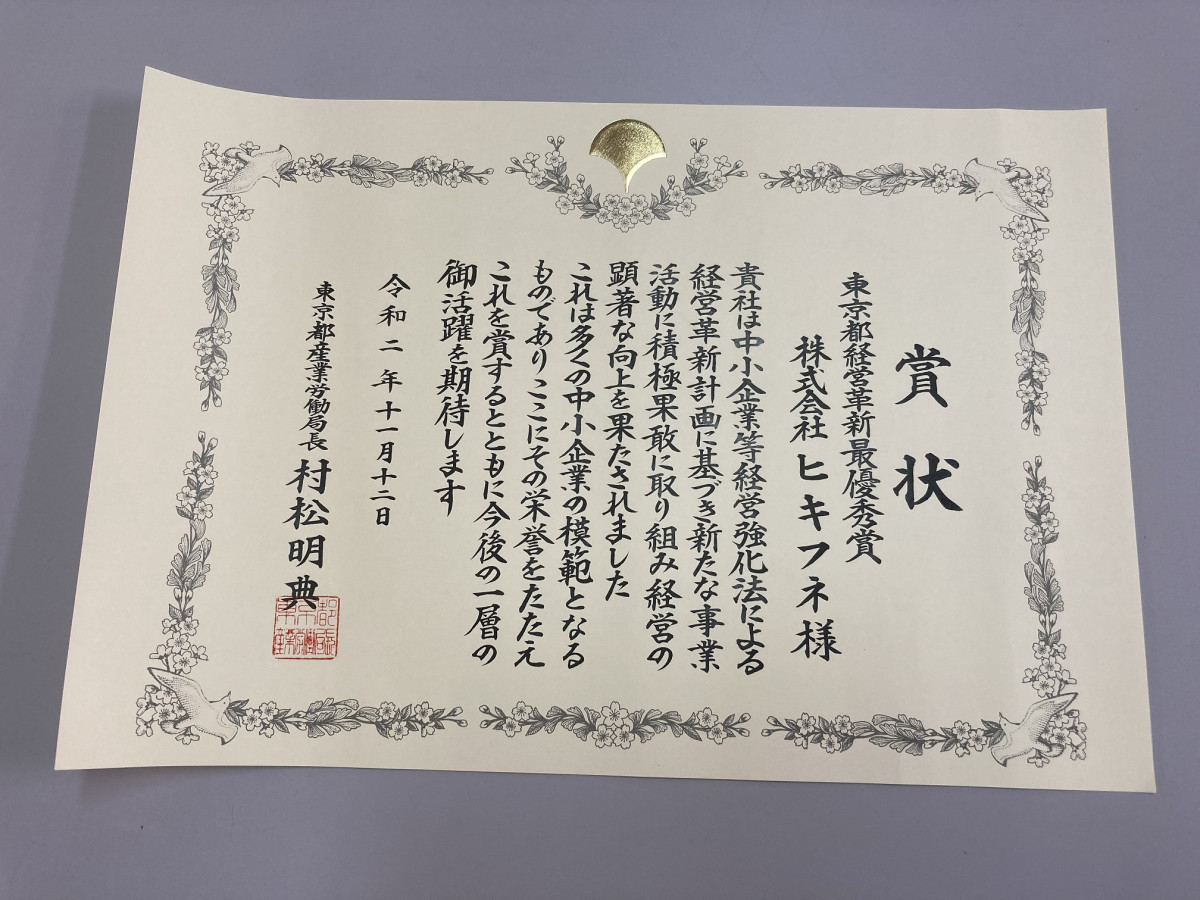 賞状
東京都経営革新最優秀賞
株式会社ヒキフネ様
貴社は中小企業等経営強化法による
経営革新計画に基づき新たな事業
活動に積極果敢に取り組み経営の
顕著な向上を果たされました
これは多くの中小企業の模範となる
ものでありここにその栄誉をたたえ
これを賞するとともに今後の一層の
御活躍を期待します
令和二年十一月十二日
東京都産業労働局長 村松明典